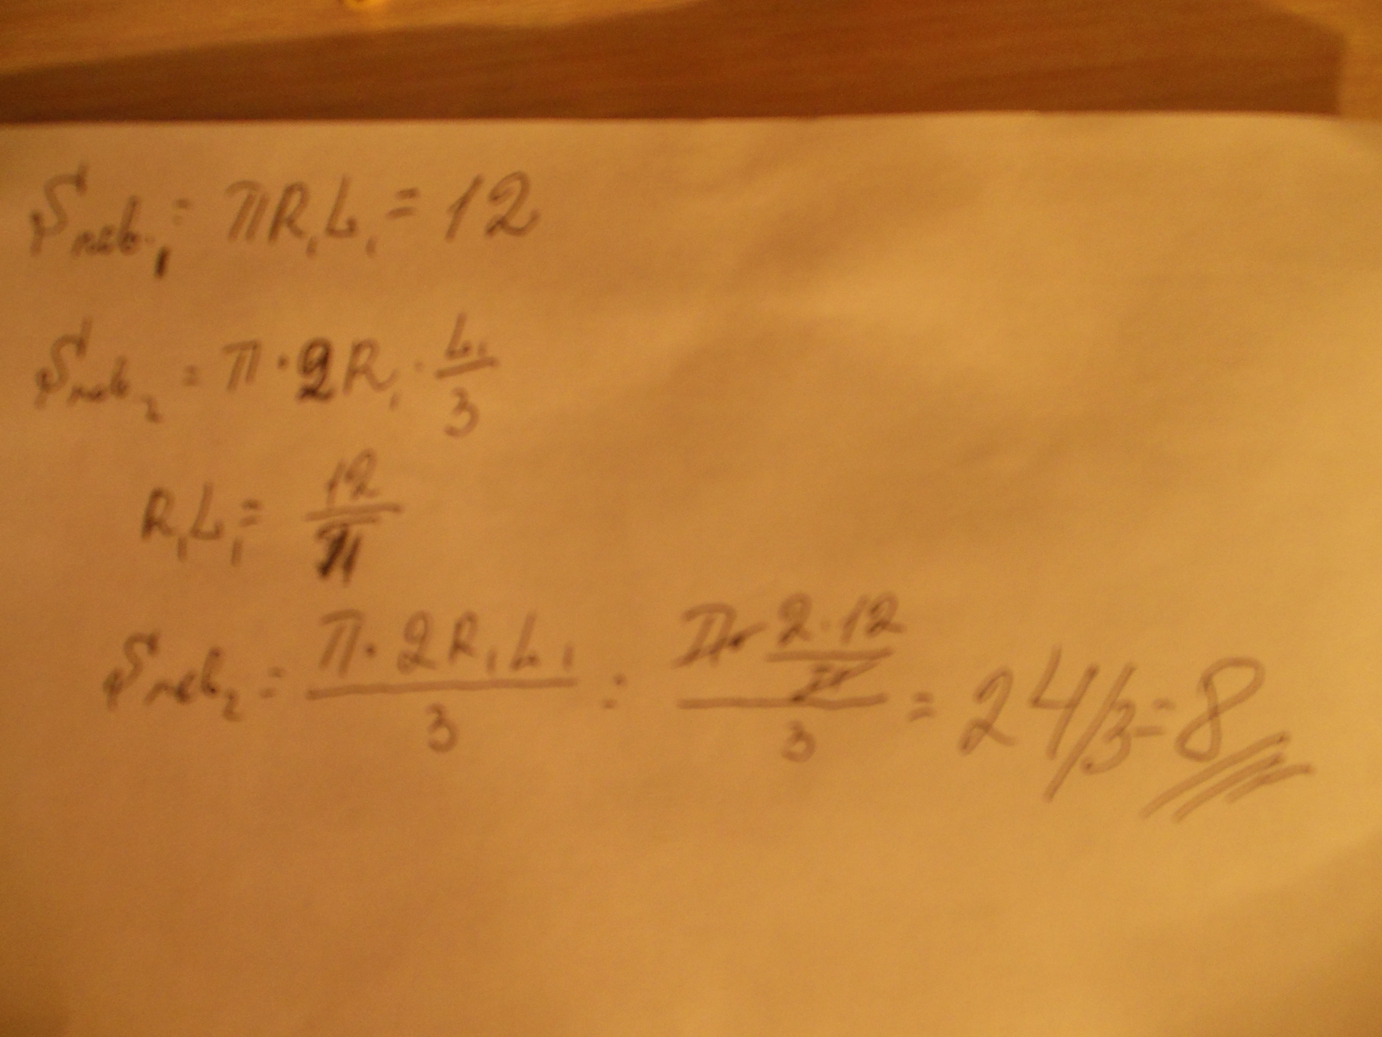 Sпов.₁ = πR₁L₁ = 12
Sпов₂ = π · 2R₁ · L₁/3
R₁L₁ = 12/π
Sпов₂ = π · 2R₁L₁/3 = π · 2·12/π/3 = 24/3 = 8